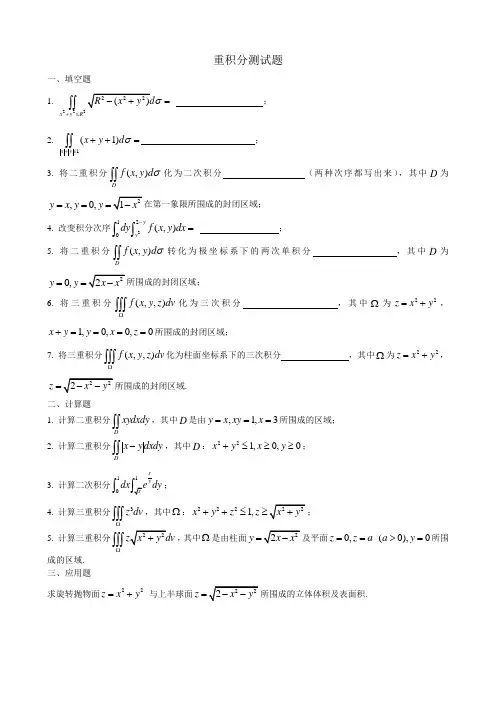 重积分测试题
一、填空题
1. $\iint\limits_{x^2+y^2\le R^2}\sqrt{R^2-(x^2+y^2)}d\sigma=$ ；
2. $\iint\limits_{|x|+|y|\le 1}(x+y+1)d\sigma=$ ；
3. 将二重积分$\iint\limits_D f(x,y)d\sigma$化为二次积分 （两种次序都写出来），其中$D$为
$y=x,y=0,y=\sqrt{1-x^2}$在第一象限所围成的封闭区域；
4. 改变积分次序$\int_0^1 dy\int_{y^2}^{2-y} f(x,y)dx=$ ；
5. 将二重积分$\iint\limits_D f(x,y)d\sigma$转化为极坐标系下的两次单积分 ，其中$D$为
$y=0,y=\sqrt{2x-x^2}$所围成的封闭区域；
6. 将三重积分$\iiint\limits_\Omega f(x,y,z)dv$化为三次积分 ，其中$\Omega$为$z=x^2+y^2$，
$x+y=1,y=0,x=0,z=0$所围成的封闭区域；
7. 将三重积分$\iiint\limits_\Omega f(x,y,z)dv$化为柱面坐标系下的三次积分 ，其中$\Omega$为$z=x^2+y^2$，
$z=\sqrt{2-x^2-y^2}$所围成的封闭区域.
二、计算题
1. 计算二重积分$\iint\limits_D xydxdy$，其中$D$是由$y=x,xy=1,x=3$所围成的区域；
2. 计算二重积分$\iint\limits_D |x-y|dxdy$，其中$D$：$x^2+y^2\le 1,x\ge 0,y\ge 0$；
3. 计算二次积分$\int_0^1 dx\int_{\sqrt{x}}^1 e^{\frac{x}{y}}dy$；
4. 计算三重积分$\iiint\limits_\Omega z^3dv$，其中$\Omega$：$x^2+y^2+z^2\le 1,z\ge\sqrt{x^2+y^2}$；
5. 计算三重积分$\iiint\limits_\Omega z\sqrt{x^2+y^2}dv$，其中$\Omega$是由柱面$y=\sqrt{2x-x^2}$及平面$z=0,z=a\ (a>0),y=0$所围
成的区域.
三、应用题
求旋转抛物面$z=x^2+y^2$ 与上半球面$z=\sqrt{2-x^2-y^2}$所围成的立体体积及表面积.